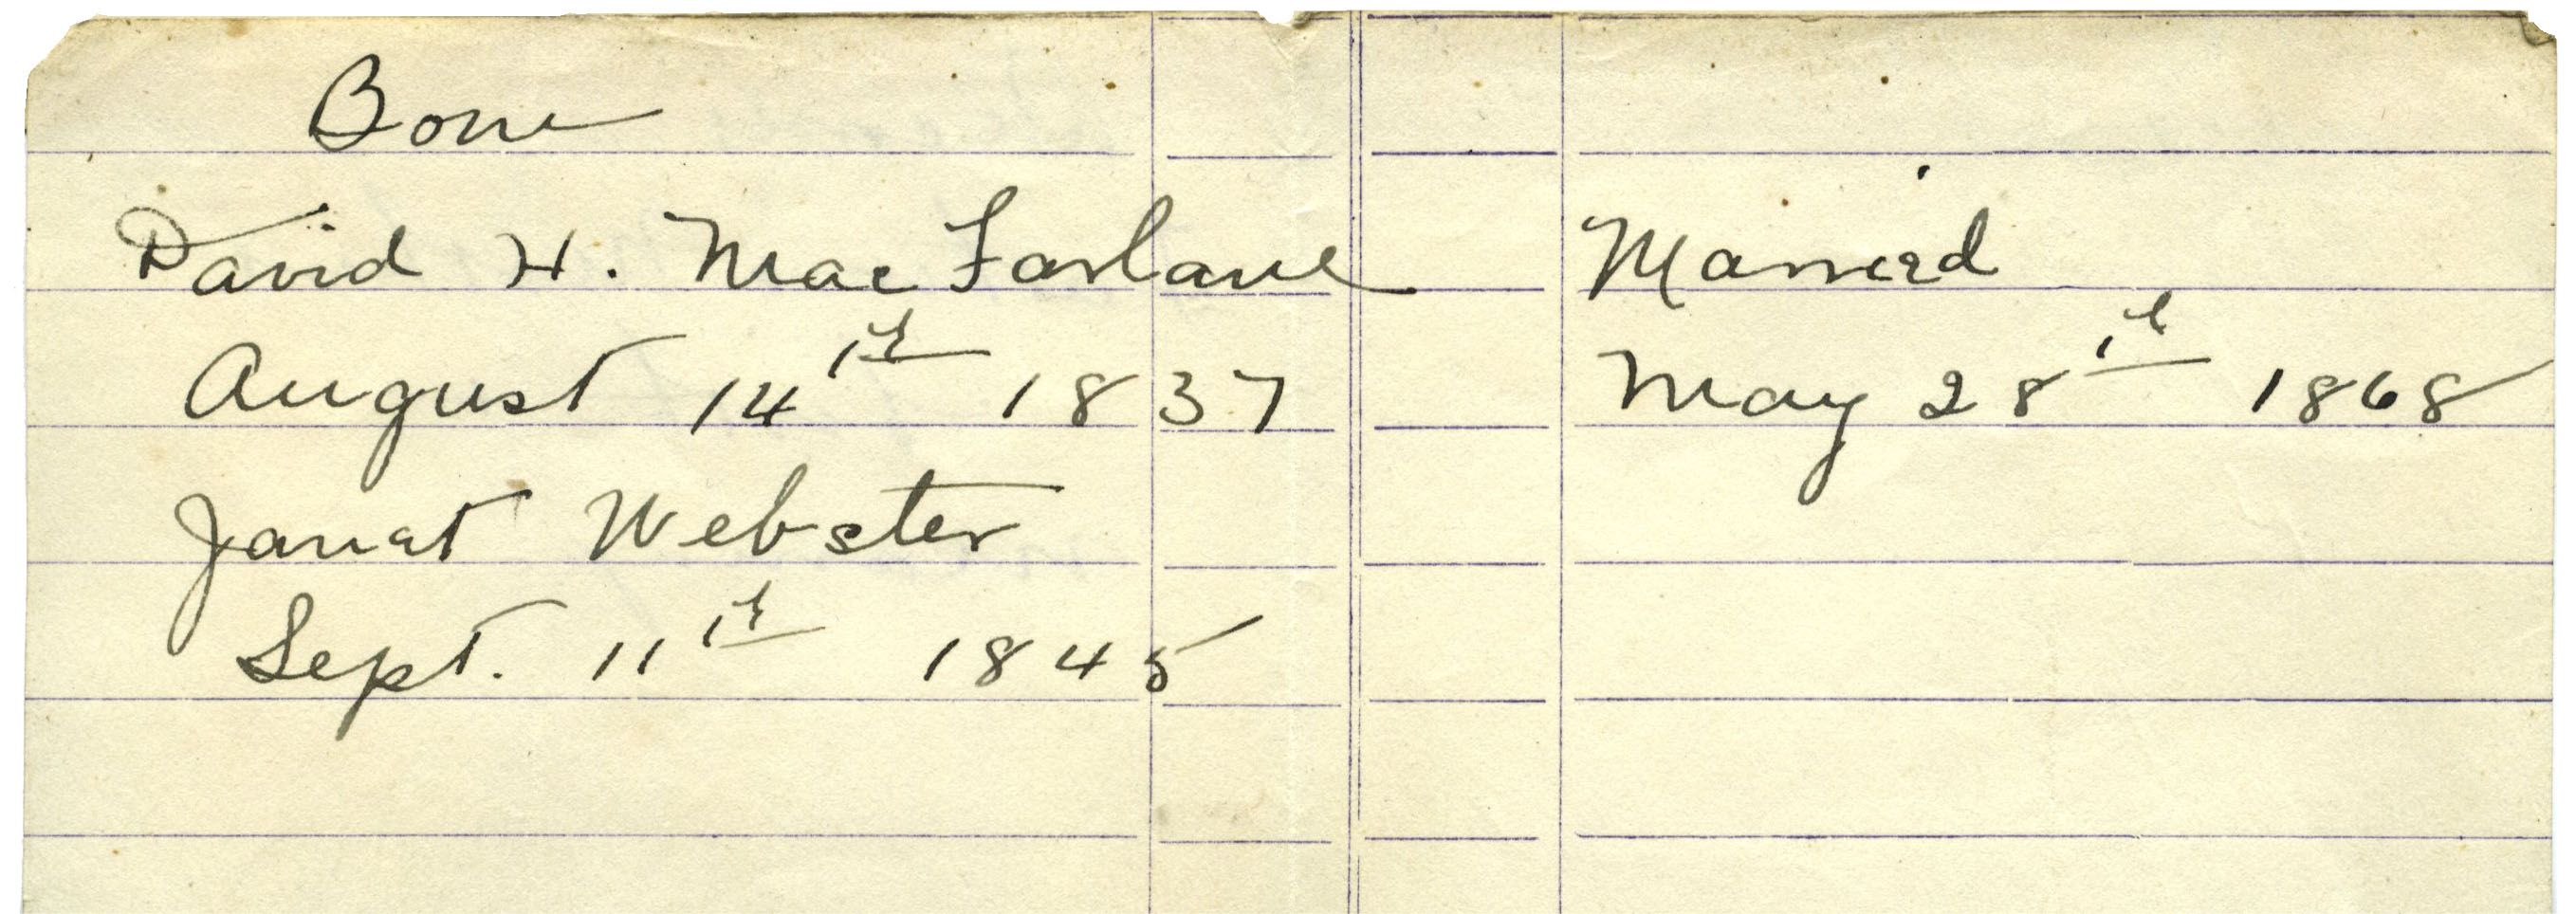 Born
David H. MacFarlane
August 14th 1837
Janet Webster
Sept. 11th 1845
Married
May 28th 1868